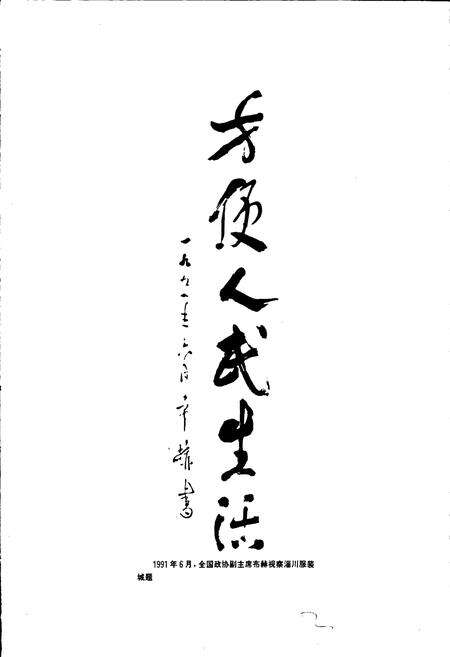 方便人民生活
一九九一年六月布赫书
1991年6月，全国政协副主席布赫视察淄川服装
城题